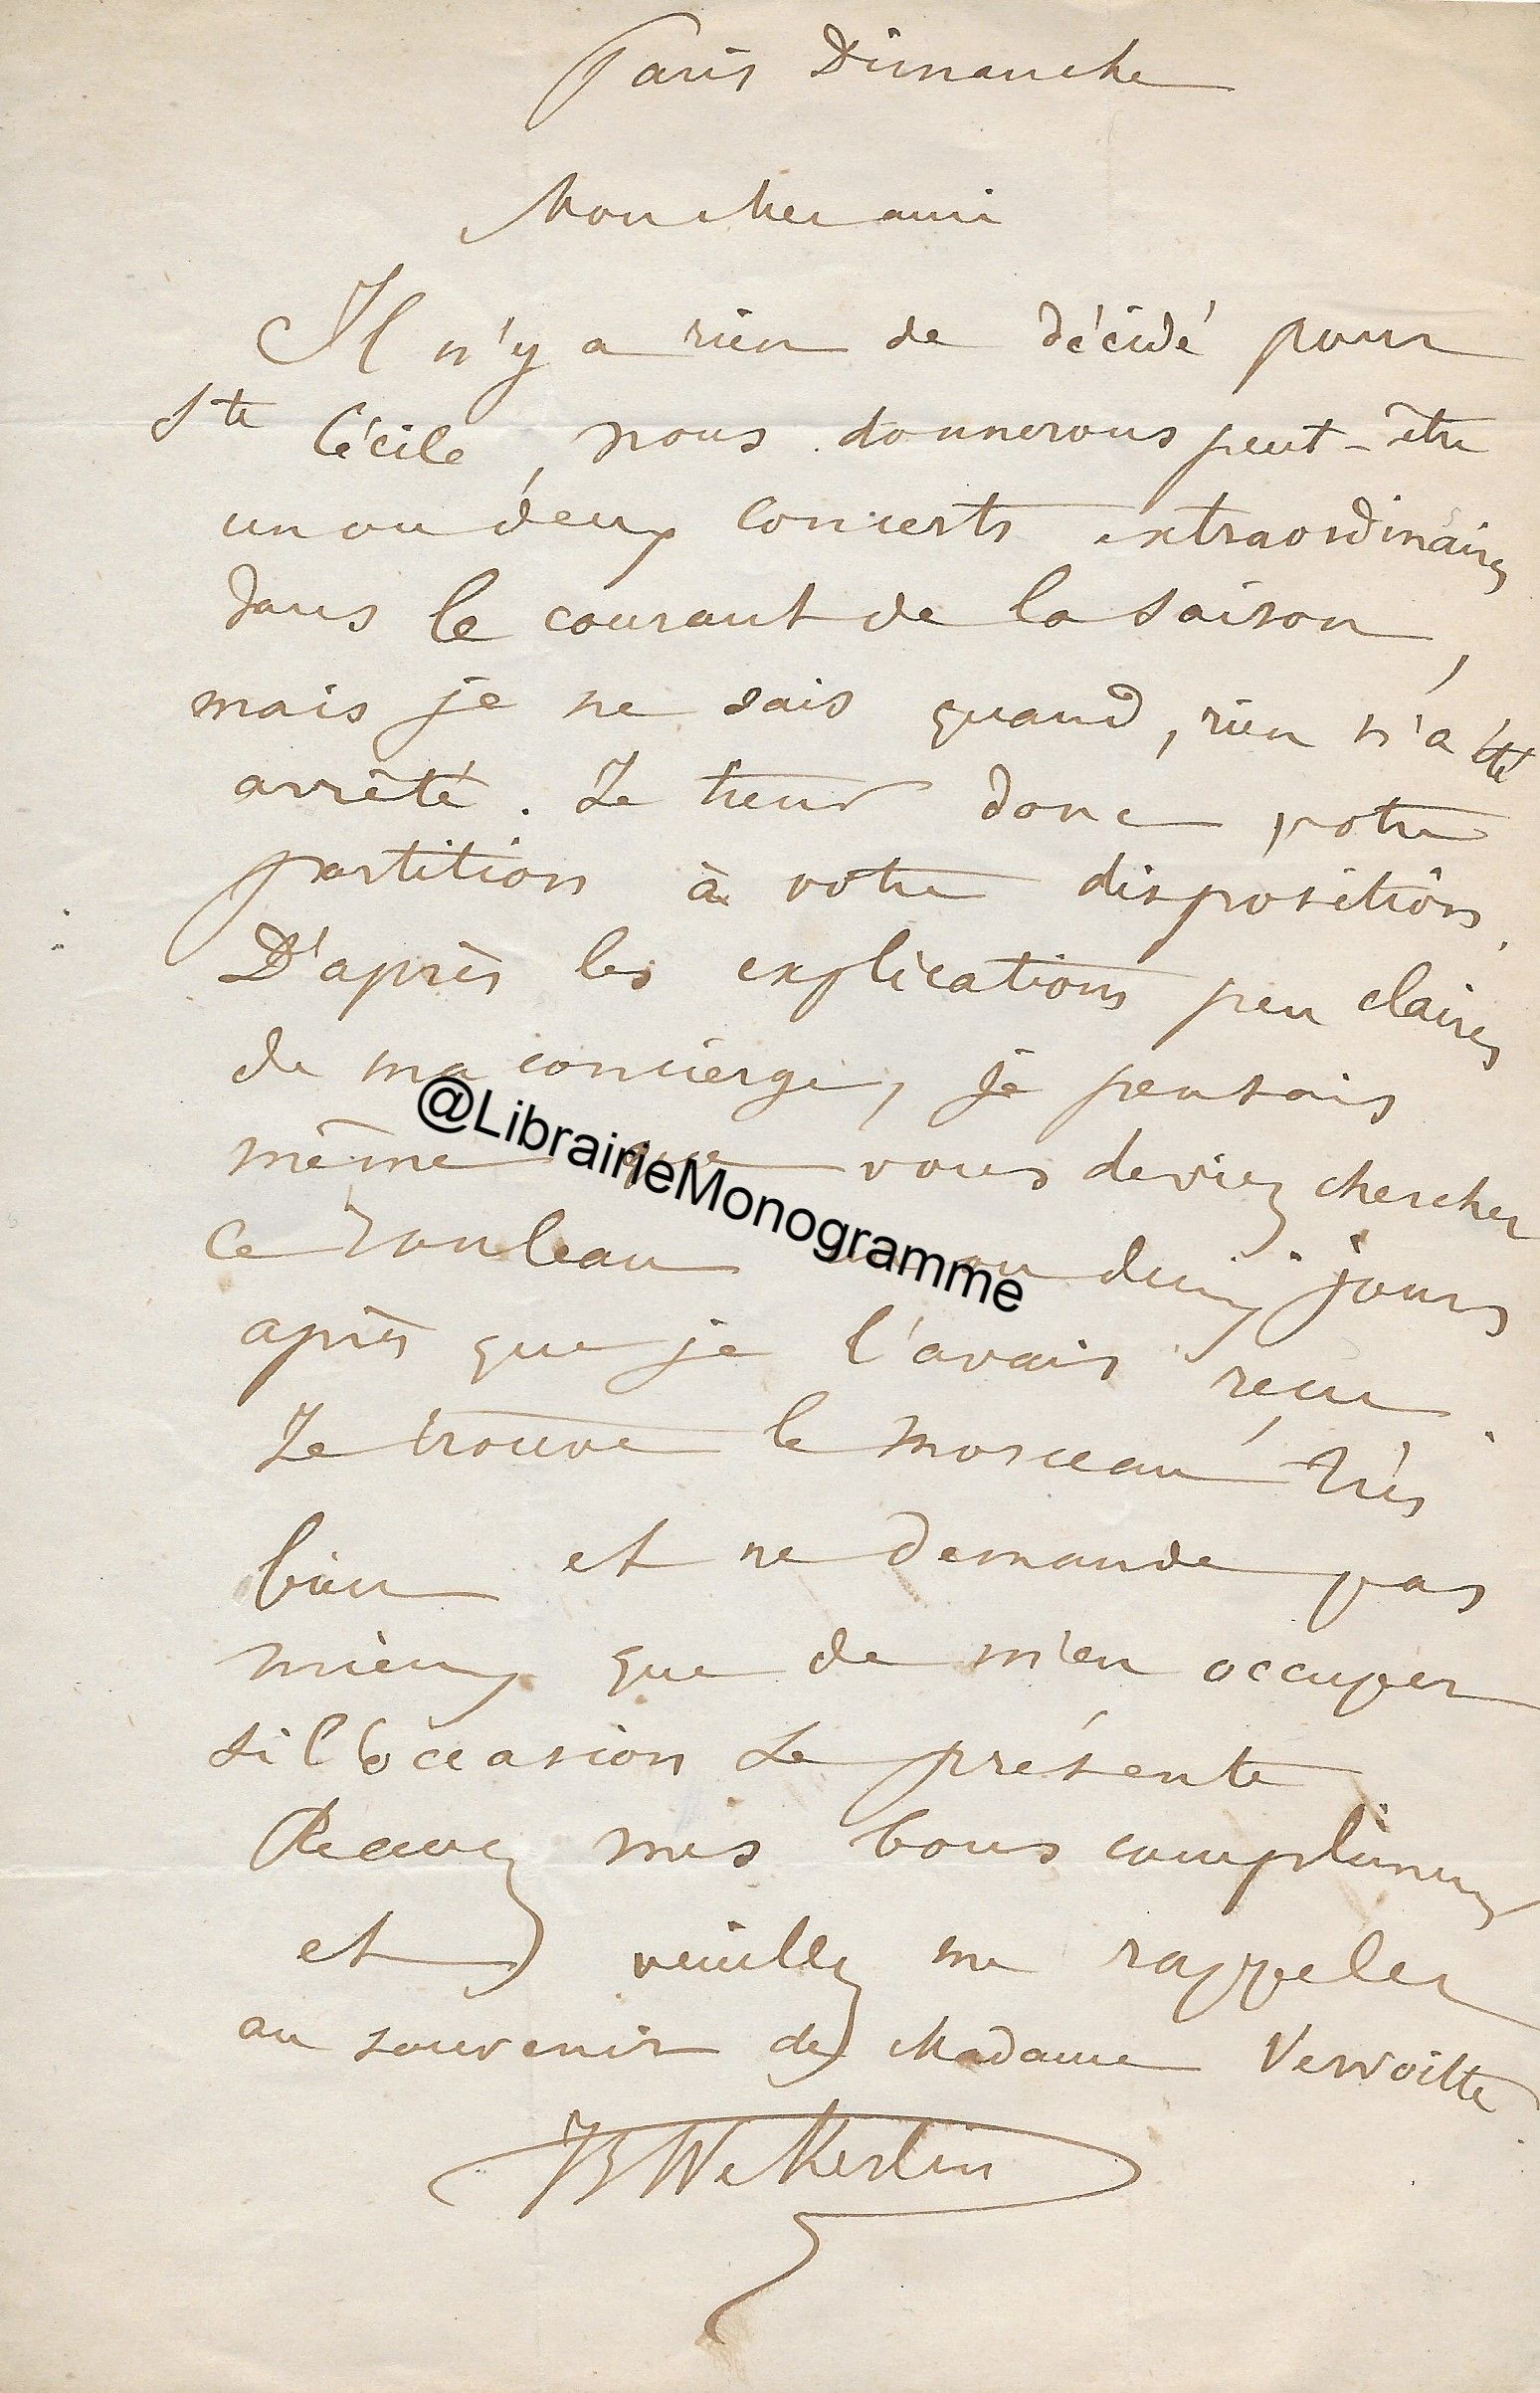 Paris Dimanche
Mon cher ami
Il n'y a rien de décidé pour
Ste Cécile, nous donnerons peut-être
un ou deux concerts extraordinaires
dans le courant de la saison,
mais je ne sais quand, rien n'a été
arrêté. Je tiens donc votre
partition à votre disposition.
D'après les explications peu claires
de ma concierge, je pensais
même que vous deviez chercher
ce rouleau ou deux jours
après que je l'avais reçu.
Je trouve le morceau très
bien et ne demande pas
mieux que de m'en occuper
si l'occasion se présente
Recevez mes bons compliments
et veuillez me rappeler
au souvenir de Madame Vervoitte
JB Wekerlin
@LibrairieMonogramme